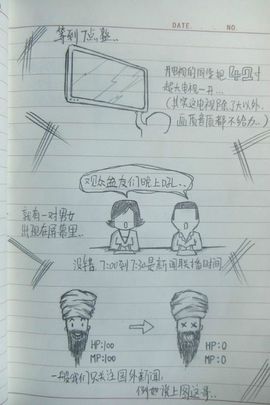 DATE. NO.
等到7点整..
用电视的同学把
超大电视一开...
(其实这电视除了大以外,
画质音质都不给力..)
观众盆友们晚上吼..
就有一对男女
出现在屏幕里..
没错. 7:00到7:30是新闻联播时间.
HP:100
MP:100
HP:0
MP:0
一般我们只关注国外新闻,
例如说上图这哥..